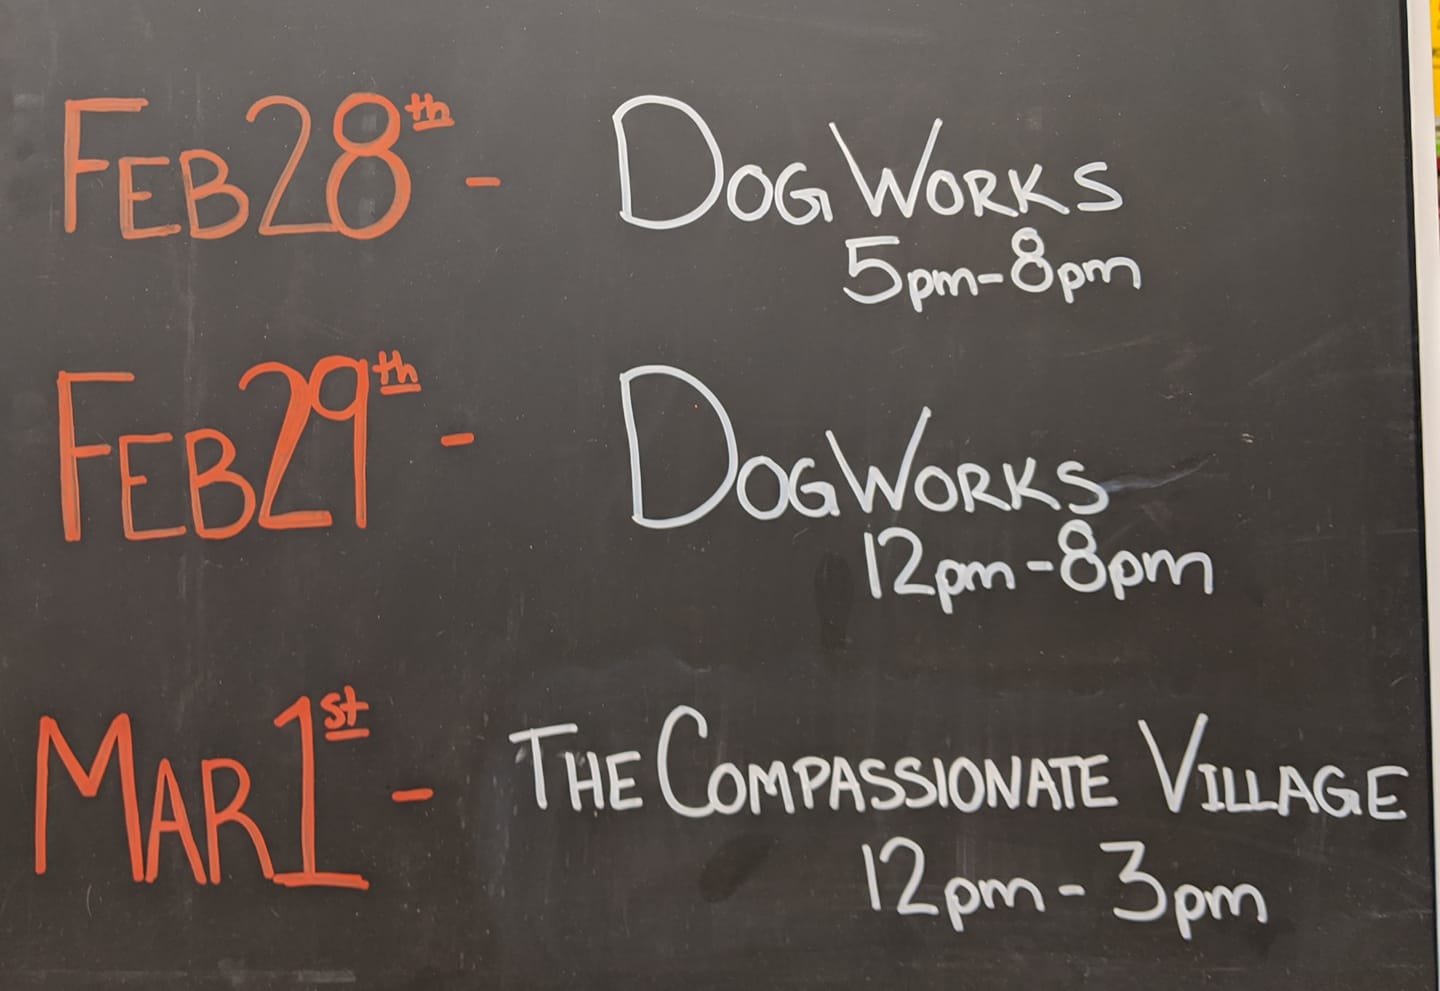 FEB 28th - DOG WORKS
5pm-8pm
FEB 29th - DOG WORKS
12pm-8pm
MAR 1st - THE COMPASSIONATE VILLAGE
12pm-3pm